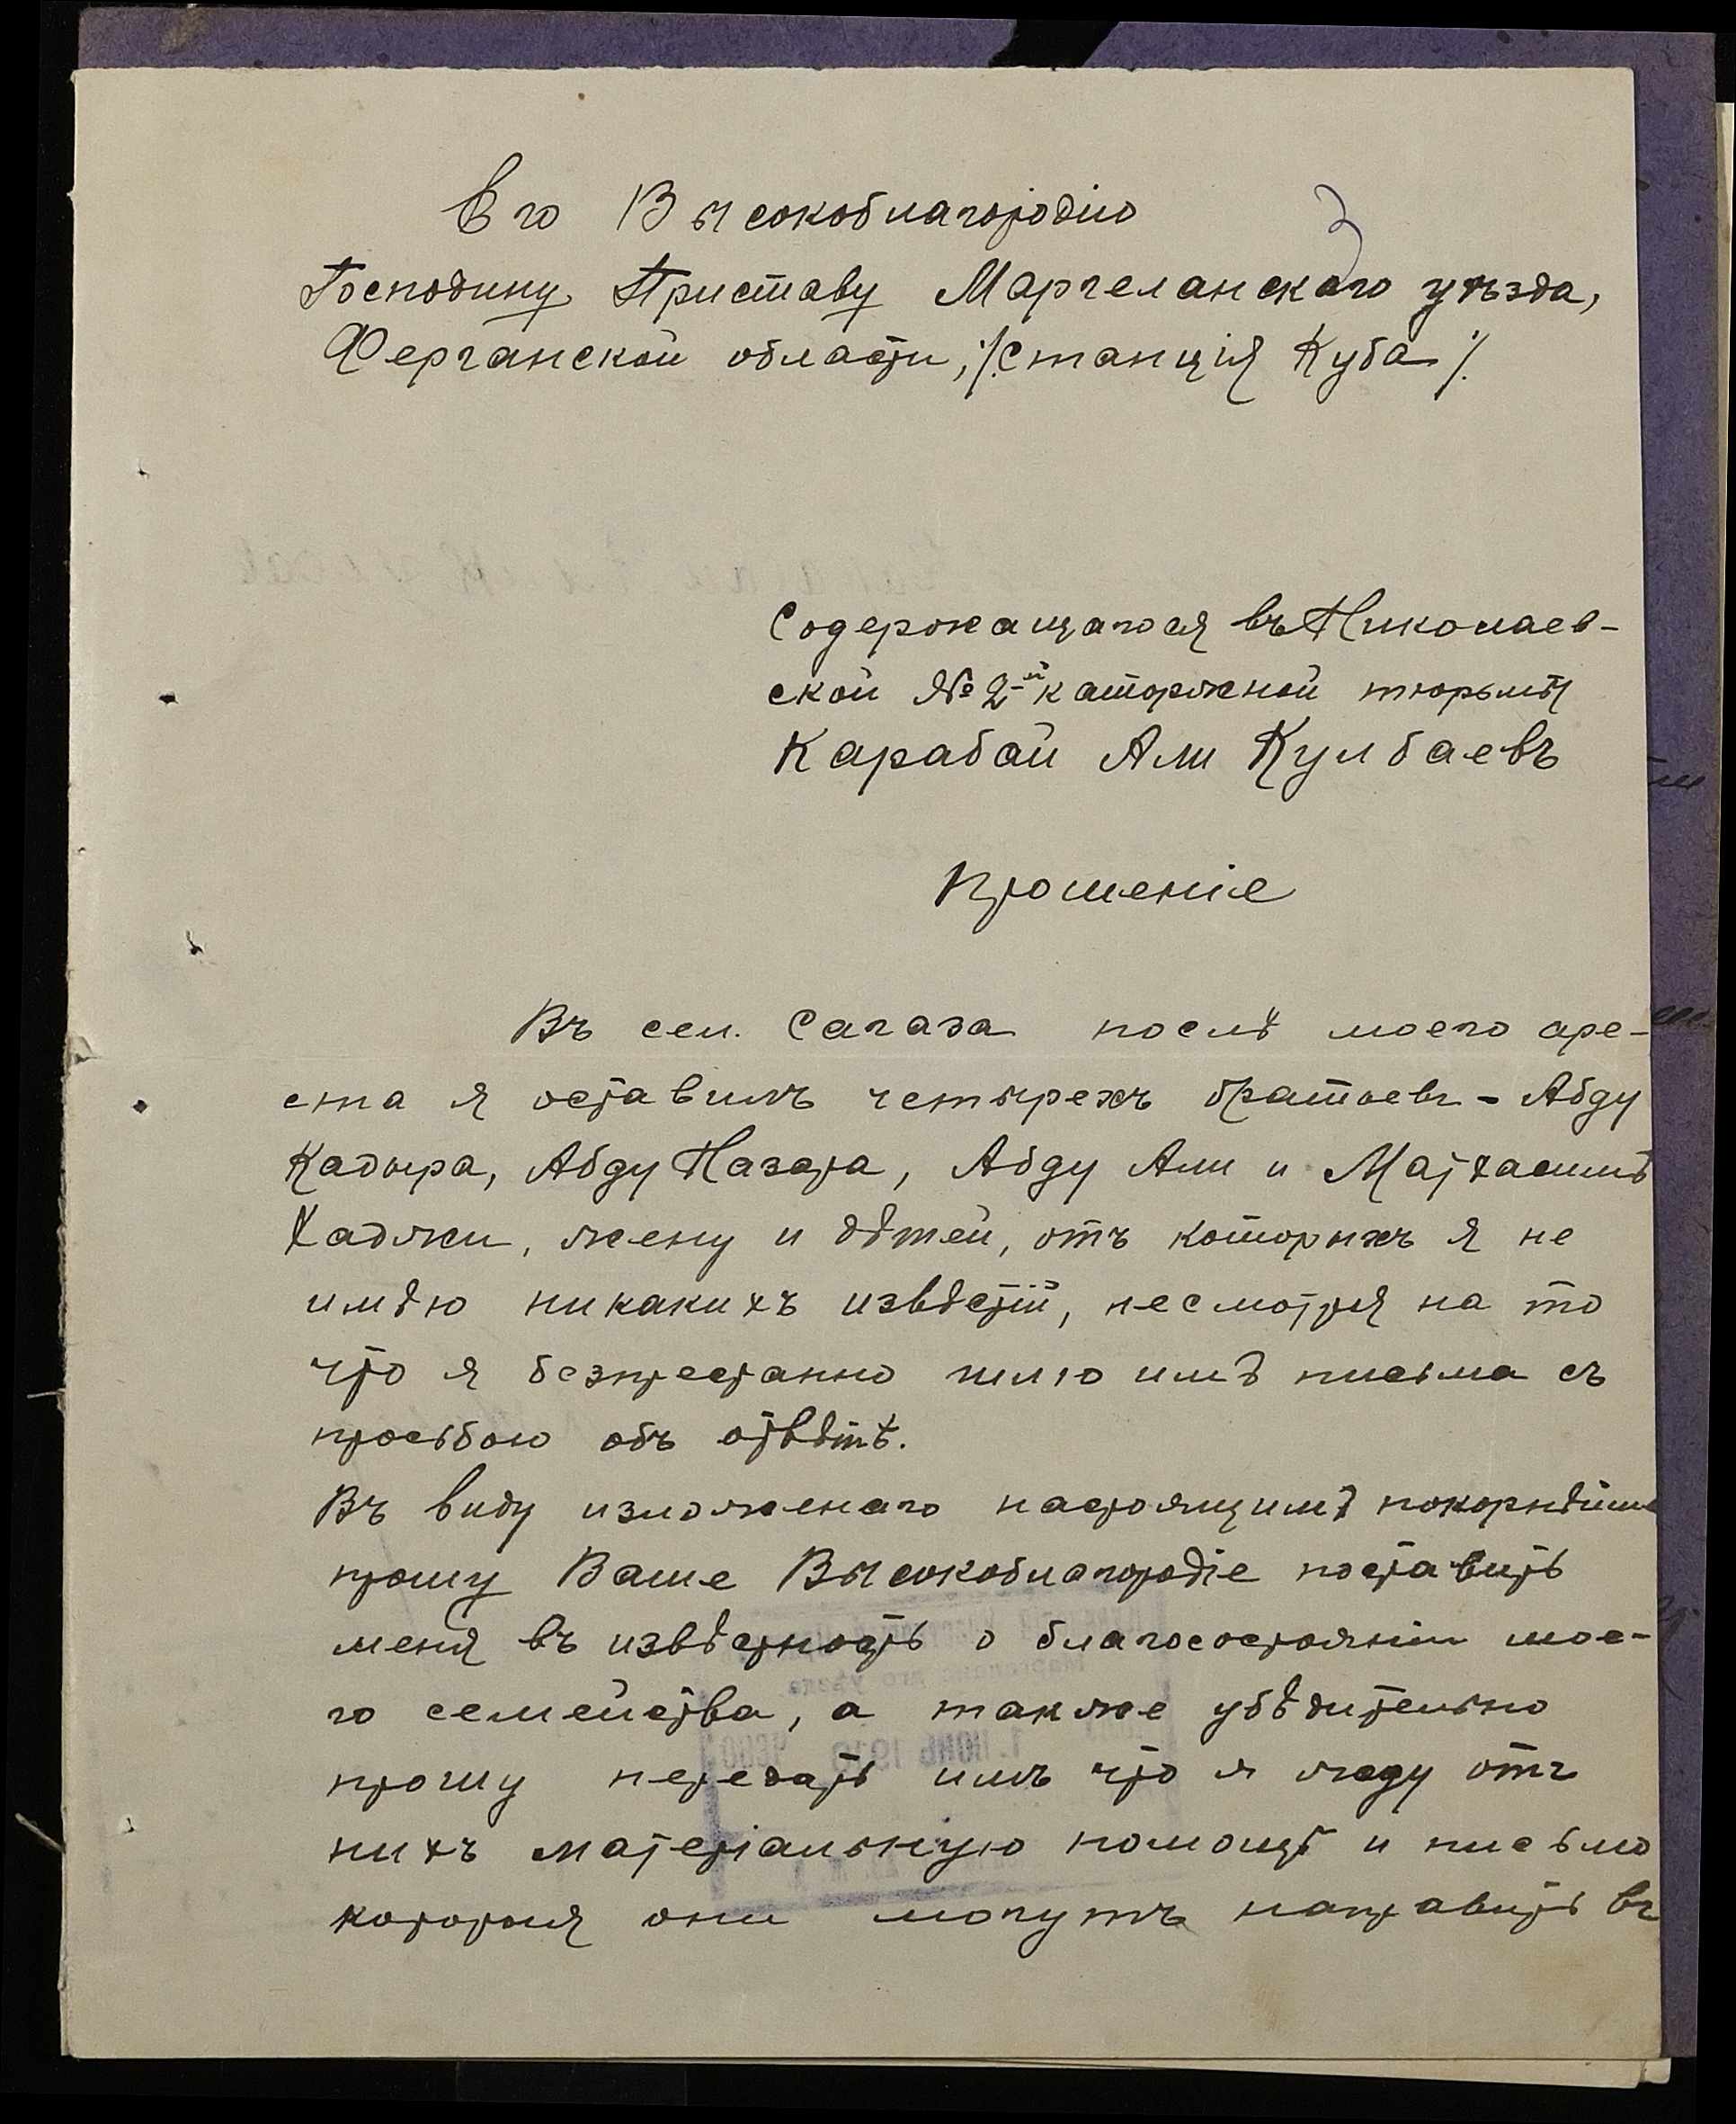 3
Его Высокоблагородію
Господину Приставу Маргеланскаго уѣзда,
Ферганской области, /Станція Куба/.
Содержащагося въ Николаев-
ской № 2-й каторжной тюрьмѣ
Карабай Али Кулбаевъ
Прошеніе
Въ сел. Сагаза послѣ моего аре-
ста я оставилъ четырехъ братьевъ - Абду
Кадыра, Абду Назара, Абду Али и
Хаджи, жену и дѣтей, отъ которыхъ я не
имѣю никакихъ извѣстій, несмотря на то
что я безпрестанно шлю имъ письма съ
просьбою объ отвѣтѣ.
Въ виду изложенаго настоящимъ покорнѣйше
прошу Ваше Высокоблагородіе поставить
меня въ извѣстность о благосостояніи мое-
го семейства, а также убѣдительно
прошу передать имъ что я жду отъ
нихъ матеріальную помощь и письмо
которыя они могутъ направить въ